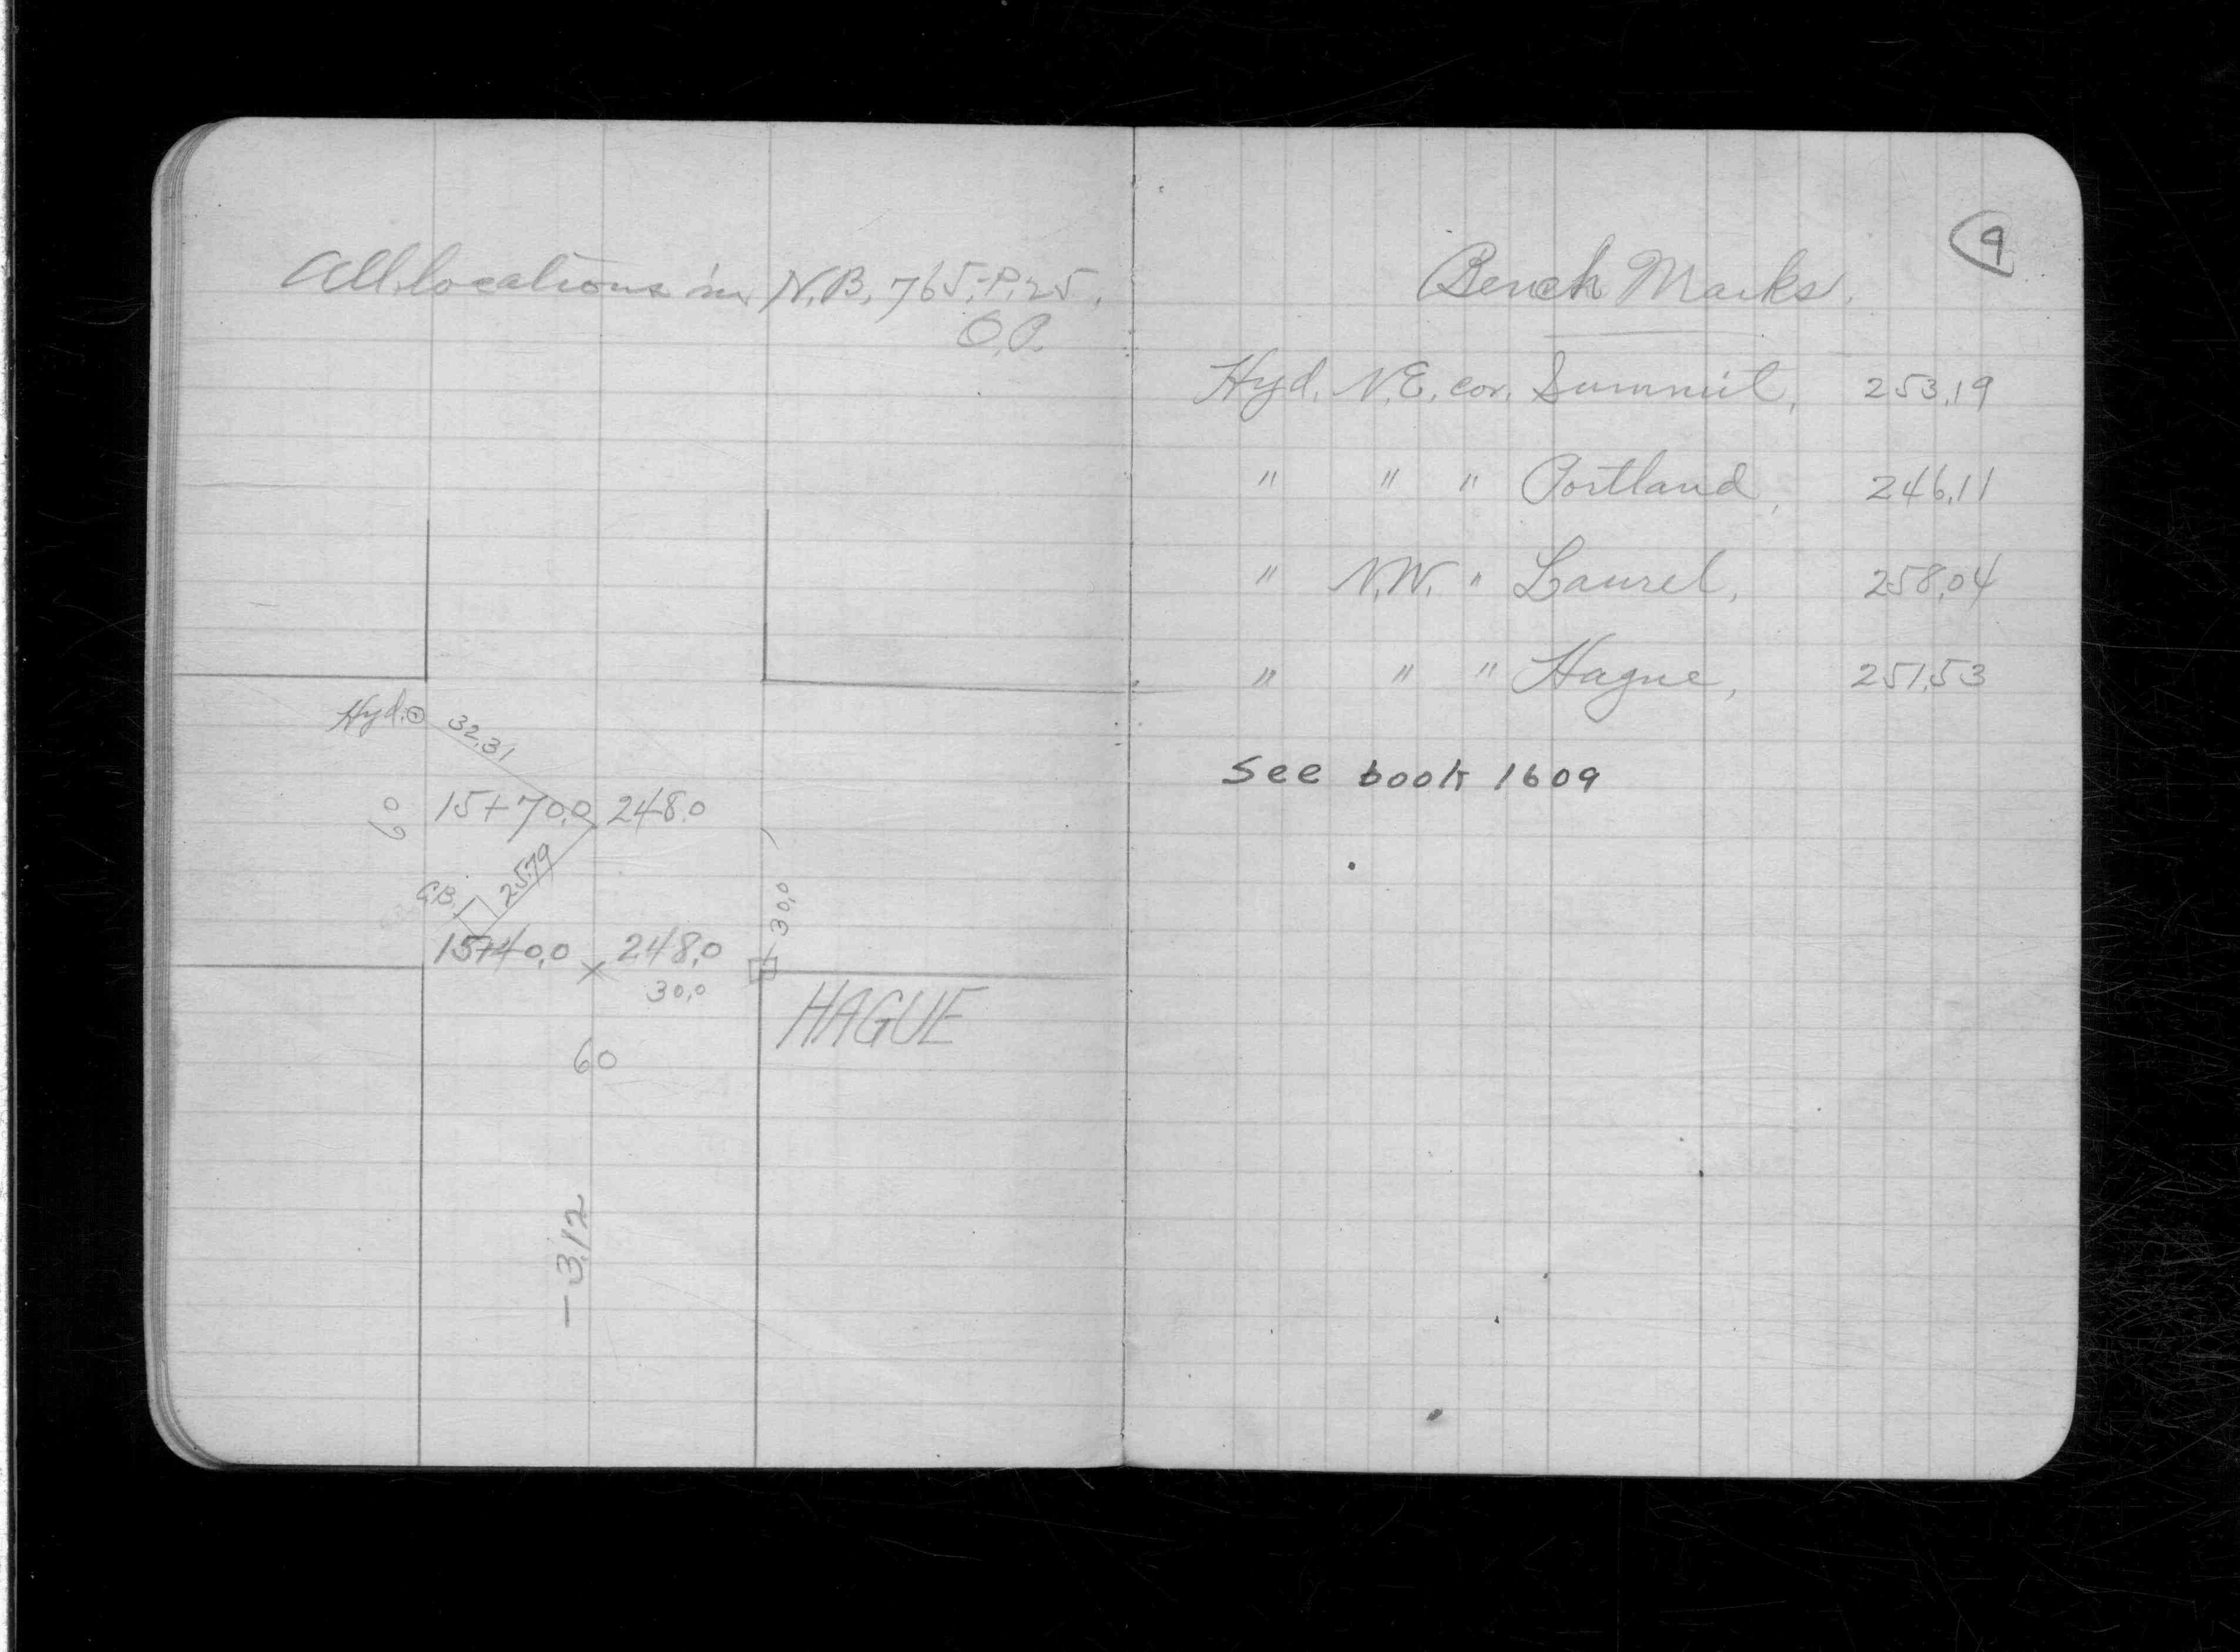 All locations in N.B. 765, P. 25.
O.P.
Hyd. 32.31
60 15+70.0 248.0
C.B. 25.79
30.0
15+40.0 248.0
30.0
HAGUE
60
-3.12
9
Bench Marks.
Hyd. N.E. cor. Summit, 253.19
" " " Portland, 246.11
" N.W. " Laurel, 258.04
" " " Hague, 251.53
See book 1609